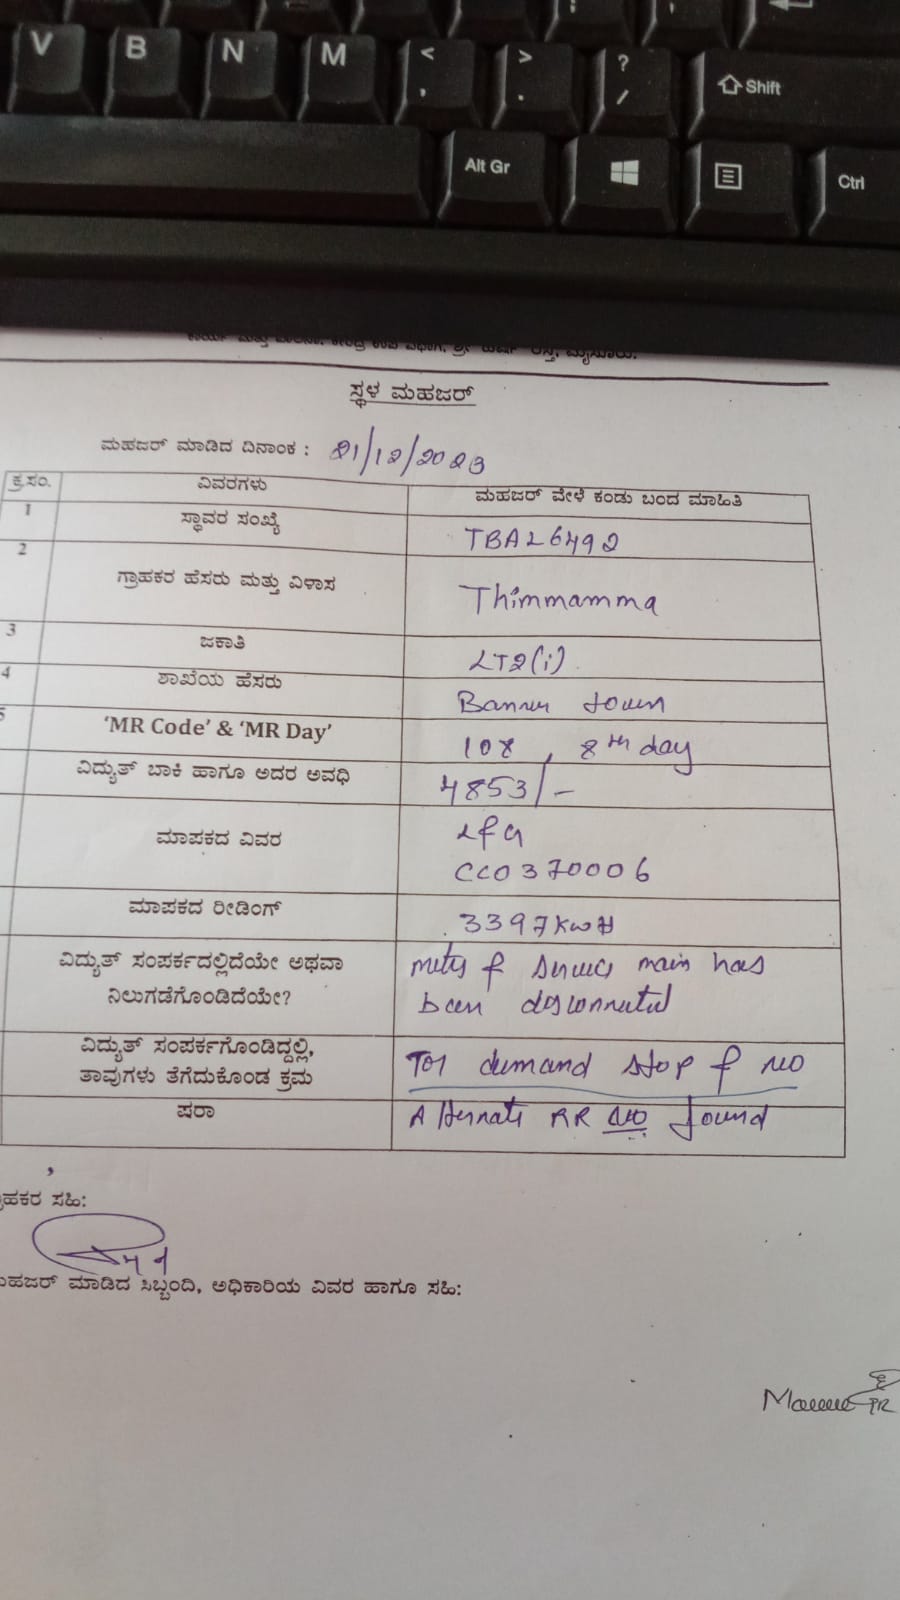 V B N M < , > . ? / Shift
Alt Gr Ctrl
ಸ್ಥಳ ಮಹಜರ್
ಮಹಜರ್ ಮಾಡಿದ ದಿನಾಂಕ : 21/12/2023
ಕ್ರ.ಸಂ. ವಿವರಗಳು ಮಹಜರ್ ವೇಳೆ ಕಂಡು ಬಂದ ಮಾಹಿತಿ
1 ಸ್ಥಾವರ ಸಂಖ್ಯೆ TBAL6492
2 ಗ್ರಾಹಕರ ಹೆಸರು ಮತ್ತು ವಿಳಾಸ Thimmamma
3 ಜಕಾತಿ LT2(i)
4 ಶಾಖೆಯ ಹೆಸರು Bannur town
5 'MR Code' & 'MR Day' 108, 8th day
ವಿದ್ಯುತ್ ಬಾಕಿ ಹಾಗೂ ಅದರ ಅವಧಿ 4853/-
ಮಾಪಕದ ವಿವರ L&G
CC0370006
ಮಾಪಕದ ರೀಡಿಂಗ್ 3397 KWH
ವಿದ್ಯುತ್ ಸಂಪರ್ಕದಲ್ಲಿದೆಯೇ ಅಥವಾ meter & service main has
ನಿಲುಗಡೆಗೊಂಡಿದೆಯೇ? been disconnected
ವಿದ್ಯುತ್ ಸಂಪರ್ಕಗೊಂಡಿದ್ದಲ್ಲಿ, For demand stop & no
ತಾವುಗಳು ತೆಗೆದುಕೊಂಡ ಕ್ರಮ
ಷರಾ Alternate RR no found
ಗ್ರಾಹಕರ ಸಹಿ:
ಮಹಜರ್ ಮಾಡಿದ ಸಿಬ್ಬಂದಿ, ಅಧಿಕಾರಿಯ ವಿವರ ಹಾಗೂ ಸಹಿ: